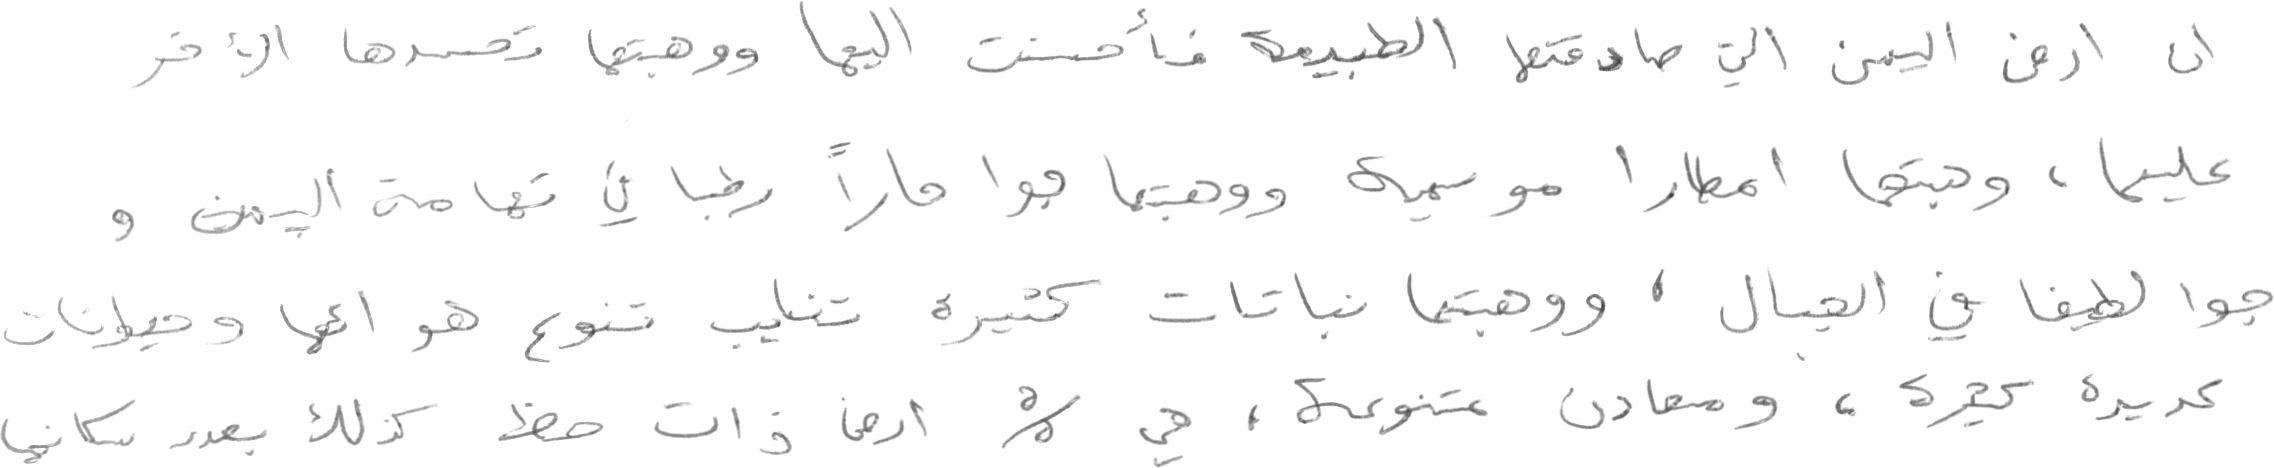 ان ارض اليمن التي صادقتها الطبيعة فأحسنت اليها ووهبتها تحسدها الأخر
عليها، وهبتها امطارا موسمية ووهبتها جوا حاراً رطبا في تهامة اليمن و
جوا لطيفا في الجبال، ووهبتها نباتات كثيرة تنوع هوائها وحيوانات
عديدة كثيرة، ومعادن متنوعة، هي % ارض ذات حظ كذلك بعدد سكانها